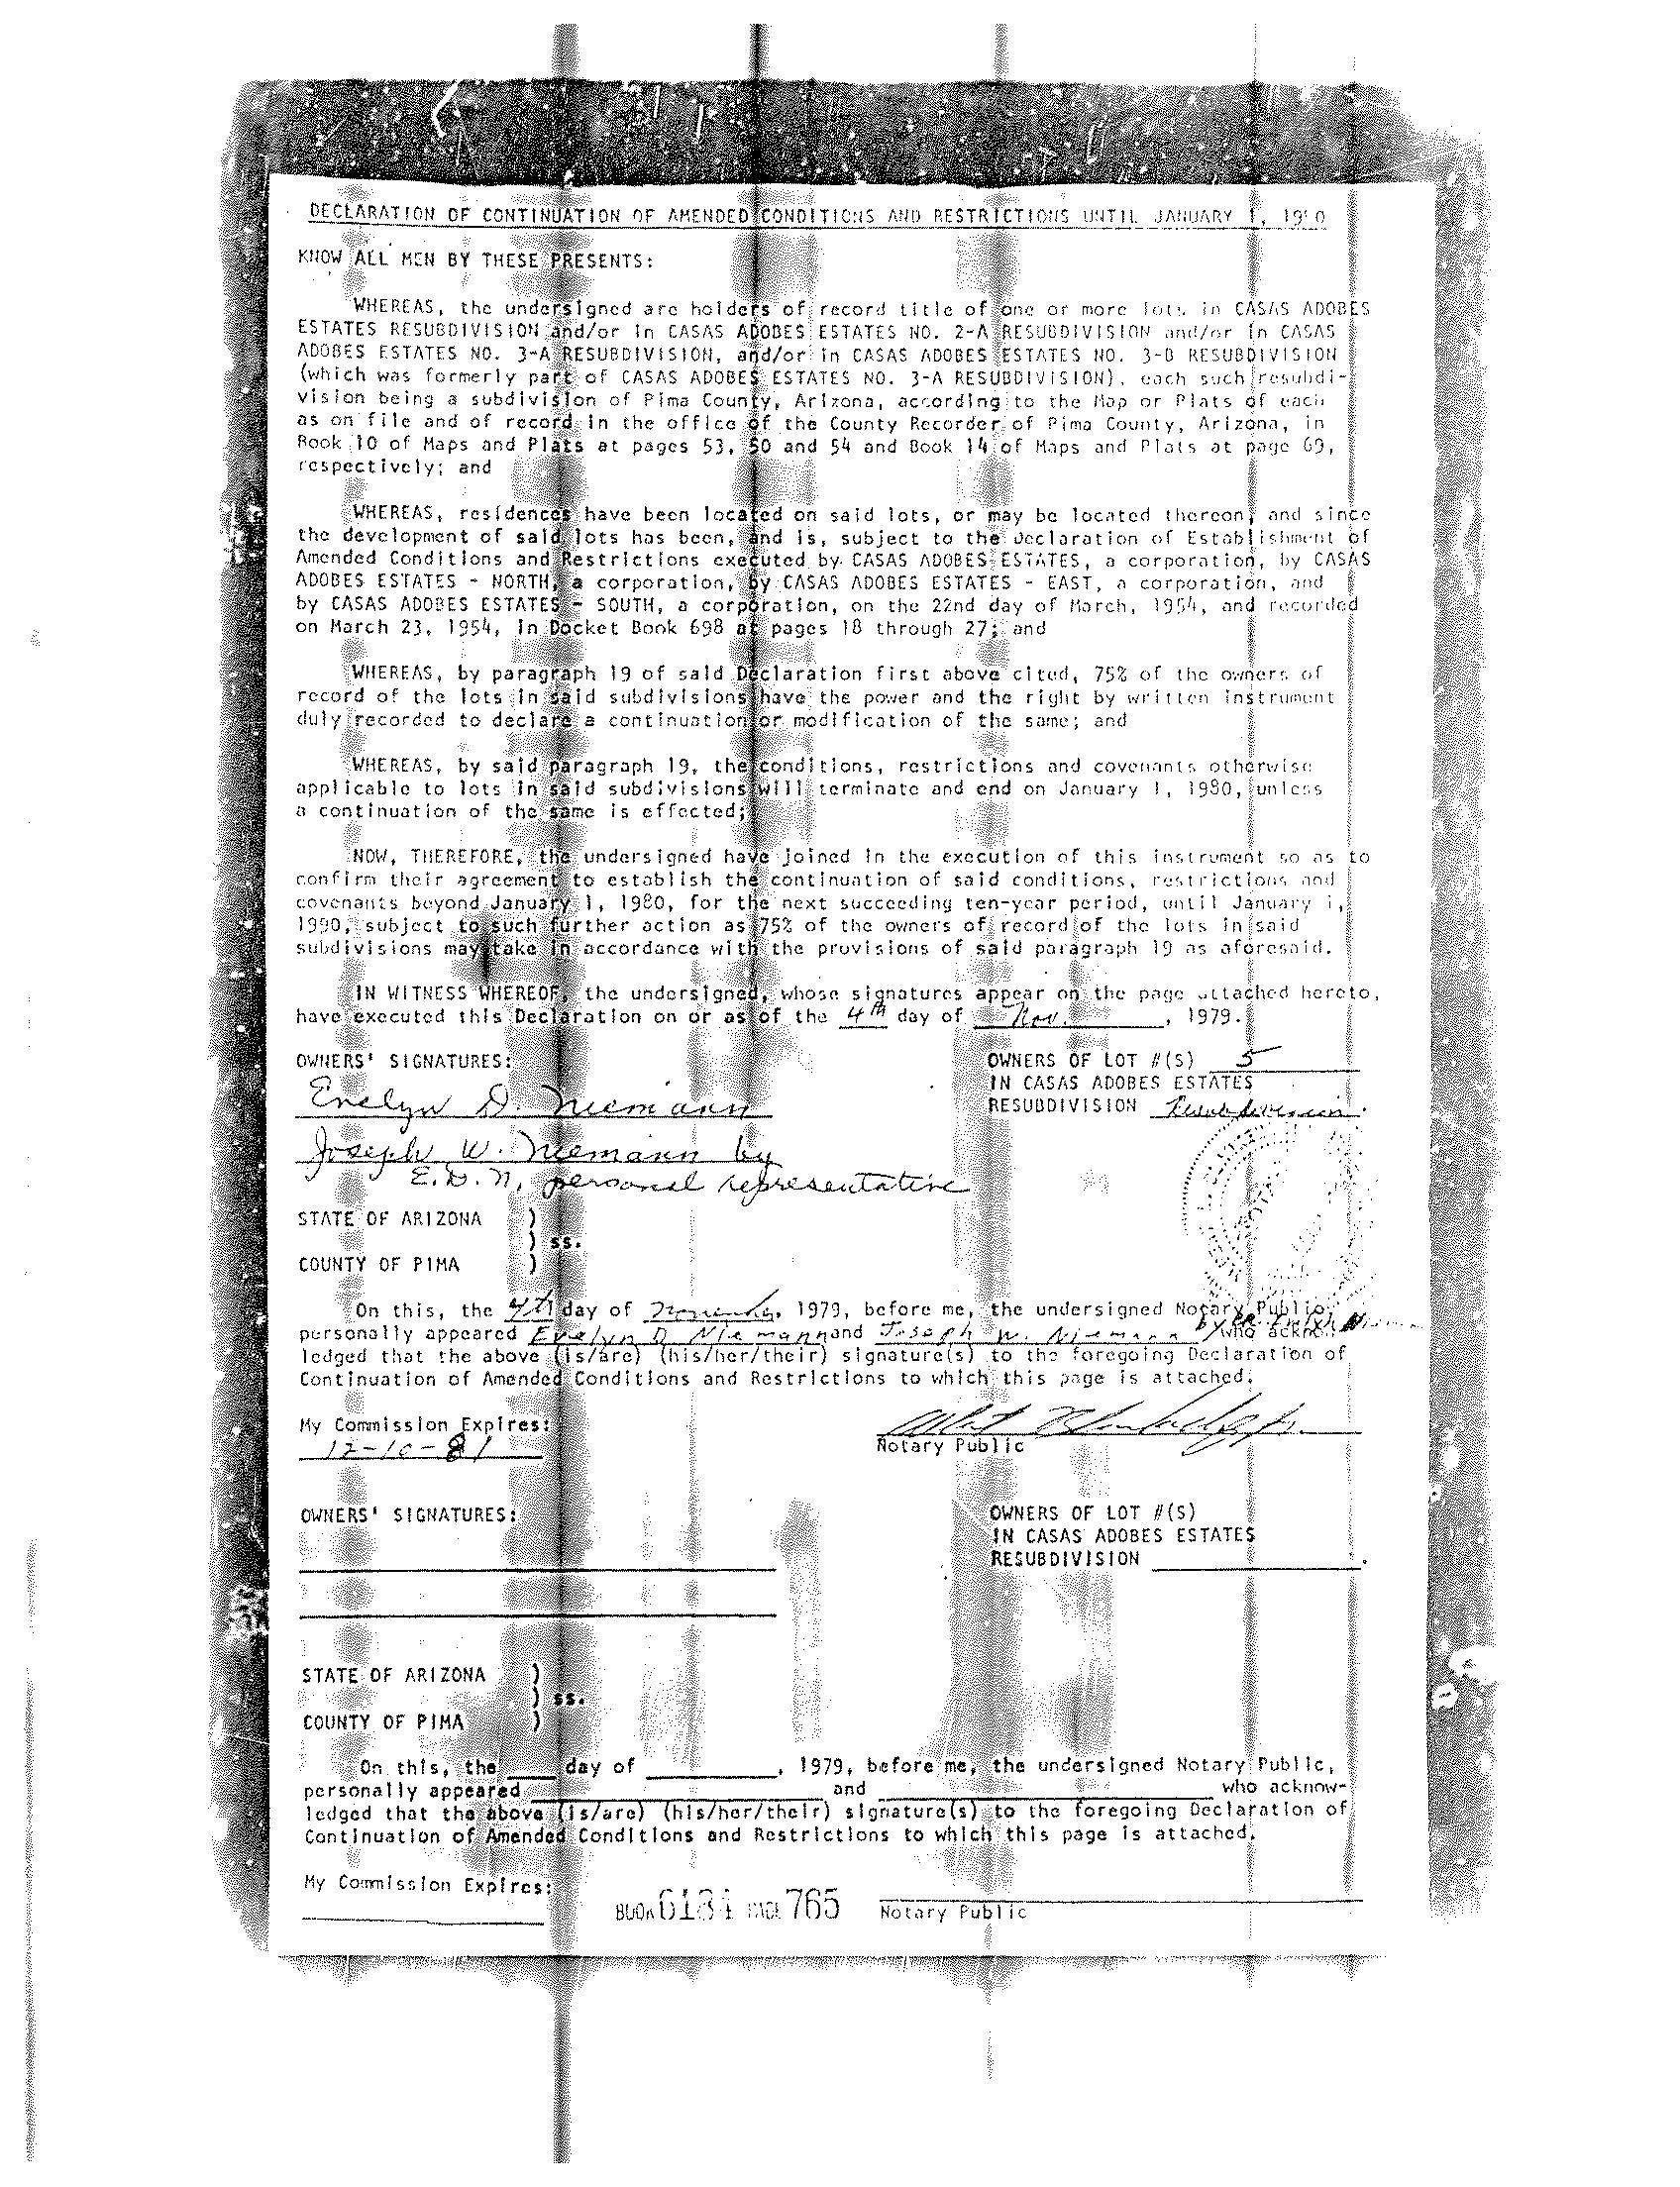 DECLARATION OF CONTINUATION OF AMENDED CONDITIONS AND RESTRICTIONS UNTIL JANUARY 1,
KNOW ALL MEN BY THESE PRESENTS:
WHEREAS, the undersigned are holders of record title of one or more lots in CASAS ADOBES
ESTATES RESUBDIVISION and/or in CASAS ADOBES ESTATES NO. 2-A RESUBDIVISION and/or in CASAS
ADOBES ESTATES NO. 3-A RESUBDIVISION, and/or in CASAS ADOBES ESTATES NO. 3-B RESUBDIVISION
(which was formerly part of CASAS ADOBES ESTATES NO. 3-A RESUBDIVISION), each such resubdi-
vision being a subdivision of Pima County, Arizona, according to the Map or Plats of each
as on file and of record in the office of the County Recorder of Pima County, Arizona, in
Book 10 of Maps and Plats at pages 53, 50 and 54 and Book 14 of Maps and Plats at page 69,
respectively; and
WHEREAS, residences have been located on said lots, or may be located thereon, and since
the development of said lots has been, and is, subject to the Declaration of Establishment of
Amended Conditions and Restrictions executed by CASAS ADOBES ESTATES, a corporation, by CASAS
ADOBES ESTATES - NORTH, a corporation, by CASAS ADOBES ESTATES - EAST, a corporation, and
by CASAS ADOBES ESTATES - SOUTH, a corporation, on the 22nd day of March, 1954, and recorded
on March 23, 1954, in Docket Book 698 at pages 18 through 27; and
WHEREAS, by paragraph 19 of said Declaration first above cited, 75% of the owners of
record of the lots in said subdivisions have the power and the right by written instrument
duly recorded to declare a continuation or modification of the same; and
WHEREAS, by said paragraph 19, the conditions, restrictions and covenants otherwise
applicable to lots in said subdivisions will terminate and end on January 1, 1980, unless
a continuation of the same is effected;
NOW, THEREFORE, the undersigned have joined in the execution of this instrument so as to
confirm their agreement to establish the continuation of said conditions, restrictions and
covenants beyond January 1, 1980, for the next succeeding ten-year period, until January 1,
1990, subject to such further action as 75% of the owners of record of the lots in said
subdivisions may take in accordance with the provisions of said paragraph 19 as aforesaid.
IN WITNESS WHEREOF, the undersigned, whose signatures appear on the page attached hereto,
have executed this Declaration on or as of the 4th day of Nov. , 1979.
OWNERS' SIGNATURES: OWNERS OF LOT #(S) 5
IN CASAS ADOBES ESTATES
Evelyn D. Niemann RESUBDIVISION Resubdivision.
Joseph W. Niemann by
E.D.N, personal representative
STATE OF ARIZONA )
) ss.
COUNTY OF PIMA )
On this, the 4th day of November, 1979, before me, the undersigned Notary Public,
personally appeared Evelyn D Niemann and Joseph W. Niemann who acknow-
ledged that the above (is/are) (his/her/their) signature(s) to the foregoing Declaration of
Continuation of Amended Conditions and Restrictions to which this page is attached.
My Commission Expires:
12-10-81 Notary Public
OWNERS' SIGNATURES: OWNERS OF LOT #(S)
IN CASAS ADOBES ESTATES
RESUBDIVISION .
STATE OF ARIZONA )
) ss.
COUNTY OF PIMA )
On this, the day of , 1979, before me, the undersigned Notary Public,
personally appeared and who acknow-
ledged that the above (is/are) (his/her/their) signature(s) to the foregoing Declaration of
Continuation of Amended Conditions and Restrictions to which this page is attached.
My Commission Expires:
BOOK 6134 PAGE 765 Notary Public